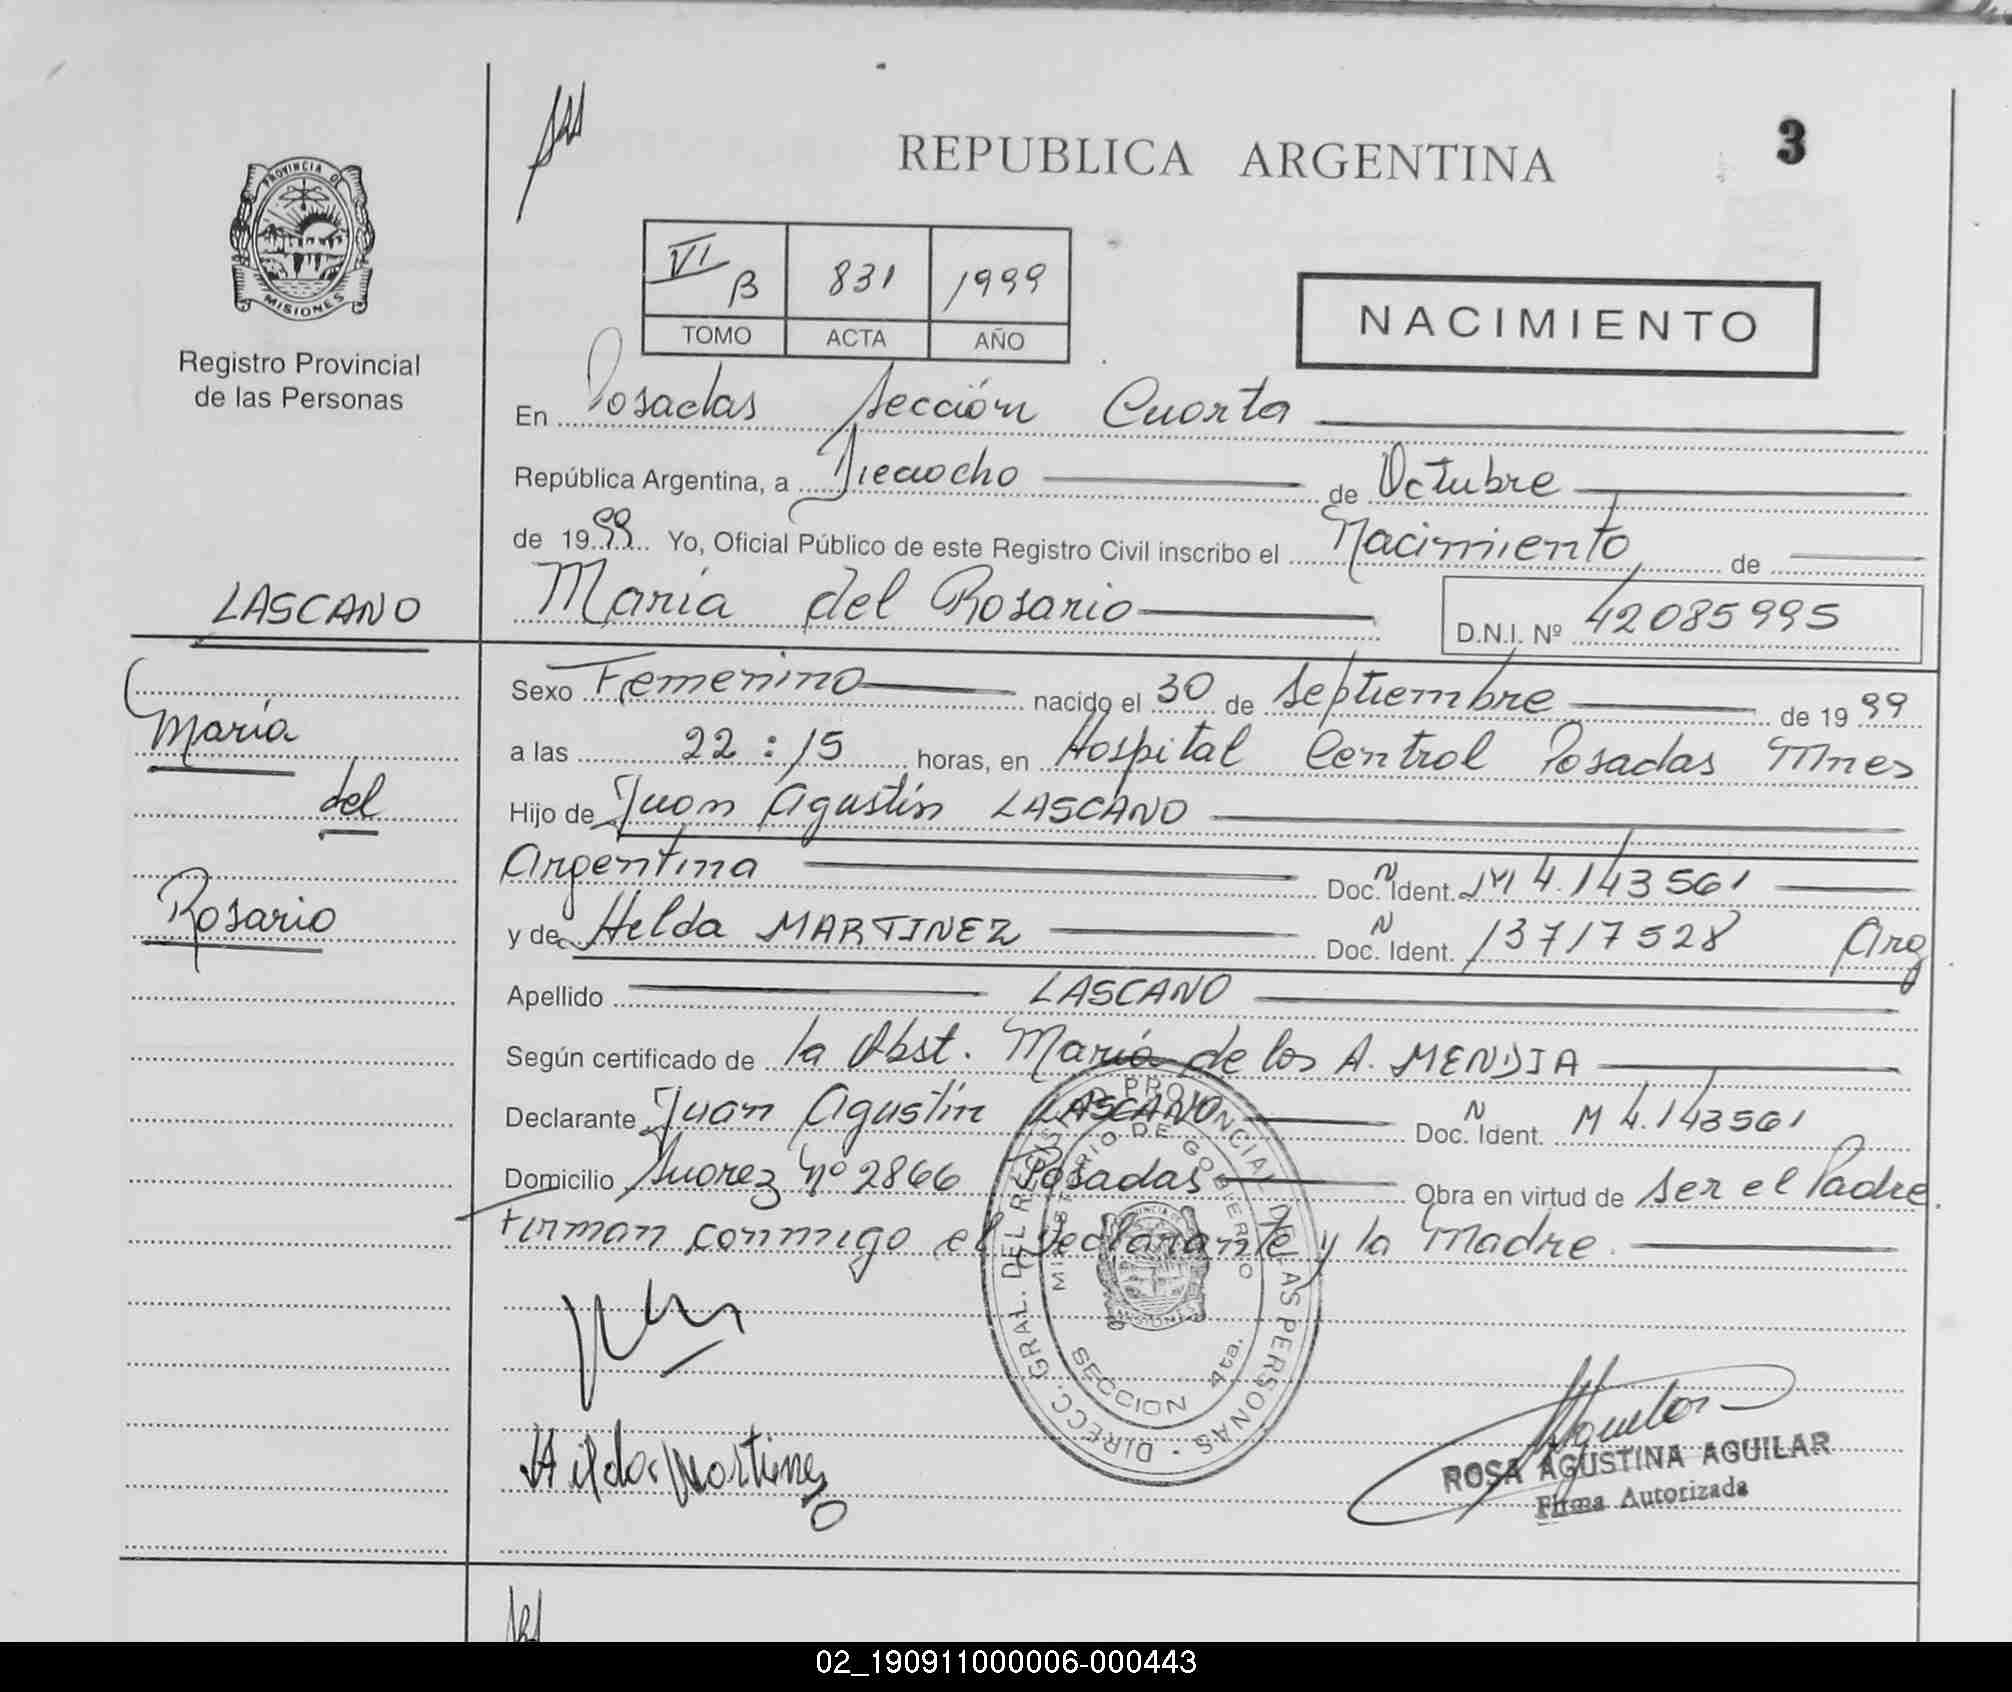 REPUBLICA ARGENTINA
3
PROVINCIA D
MISIONES
Registro Provincial
de las Personas
VI B 831 1999
TOMO ACTA AÑO
NACIMIENTO
En Posadas Sección Cuarta
República Argentina, a Dieciocho de Octubre
de 1999 Yo, Oficial Público de este Registro Civil inscribo el Nacimiento de
LASCANO
María del Rosario
D.N.I. Nº 42085995
María
del
Rosario
Sexo Femenino nacido el 30 de Septiembre de 1999
a las 22:15 horas, en Hospital Central Posadas Mnes
Hijo de Juan Agustín LASCANO
Argentina Doc. N Ident. M 4.143561
y de Helda MARTINEZ Doc. N Ident. 13717528 Arg
Apellido LASCANO
Según certificado de la Obst. María de los A. MENDIA
Declarante Juan Agustín LASCANO Doc. N Ident. M 4.143561
Domicilio Suarez Nº 2866 Posadas Obra en virtud de ser el Padre.
Firman conmigo el declarante y la Madre.
DIRECC. GRAL. DEL REGISTRO PROVINCIAL DE LAS PERSONAS
MINISTERIO DE GOBIERNO
SECCION 4ta.
Hilda Martinez
ROSA AGUSTINA AGUILAR
Firma Autorizada
02_190911000006-000443